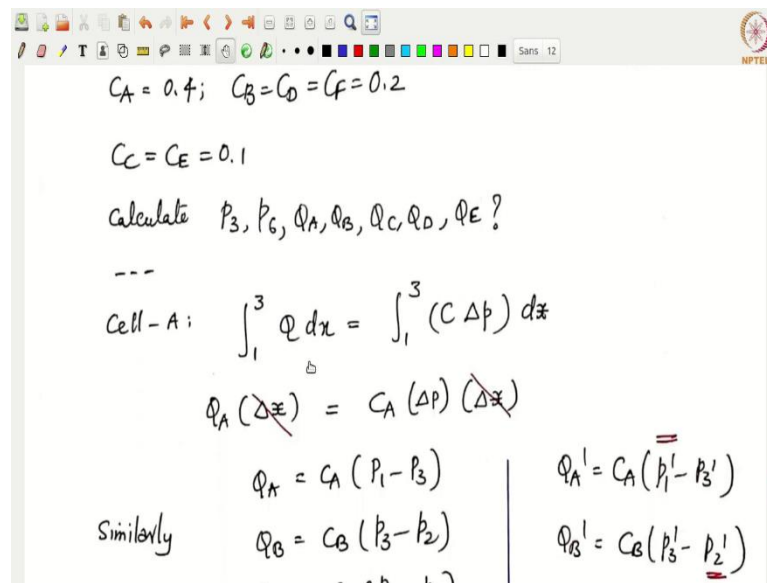 Sans 12
NPTEL
C_A = 0.4; C_B = C_D = C_F = 0.2
C_C = C_E = 0.1
Calculate p_3, p_6, Q_A, Q_B, Q_C, Q_D, Q_E ?
---
Cell-A: ∫_1^3 Q dx = ∫_1^3 (C Δp) dx
Q_A (Δx) = C_A (Δp) (Δx)
Q_A = C_A (P_1 - P_3)
Q_A' = C_A (p_1' - p_3')
Similarly Q_B = C_B (p_3 - p_2)
Q_B' = C_B (p_3' - p_2')